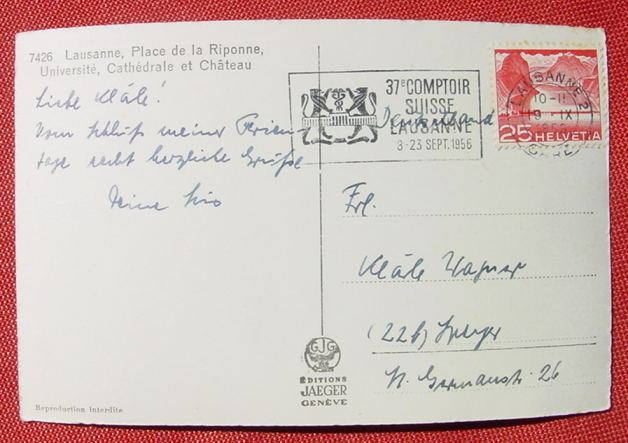 7426 Lausanne, Place de la Riponne,
Université, Cathédrale et Château
Liebe Kläle!
Vom Schluß meiner Ferien-
tage recht herzliche Grüße
Deine
37e COMPTOIR
SUISSE
LAUSANNE
8-23 SEPT. 1956
LAUSANNE 2
10-11
9-IX
GARE
25 HELVETIA
Deutschland
Frl.
Kläle Wagner
(22b) Speyer
Germanstr. 26
GJG
ÉDITIONS
JAEGER
GENÈVE
Reproduction interdite